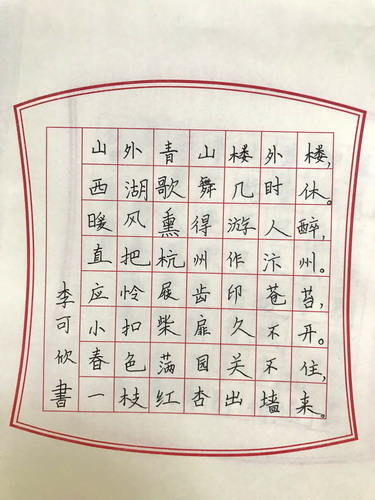 山外青山楼外楼，
西湖歌舞几时休。
暖风熏得游人醉，
直把杭州作汴州。
应怜屐齿印苍苔，
小扣柴扉久不开。
春色满园关不住，
一枝红杏出墙来。
李可欣書